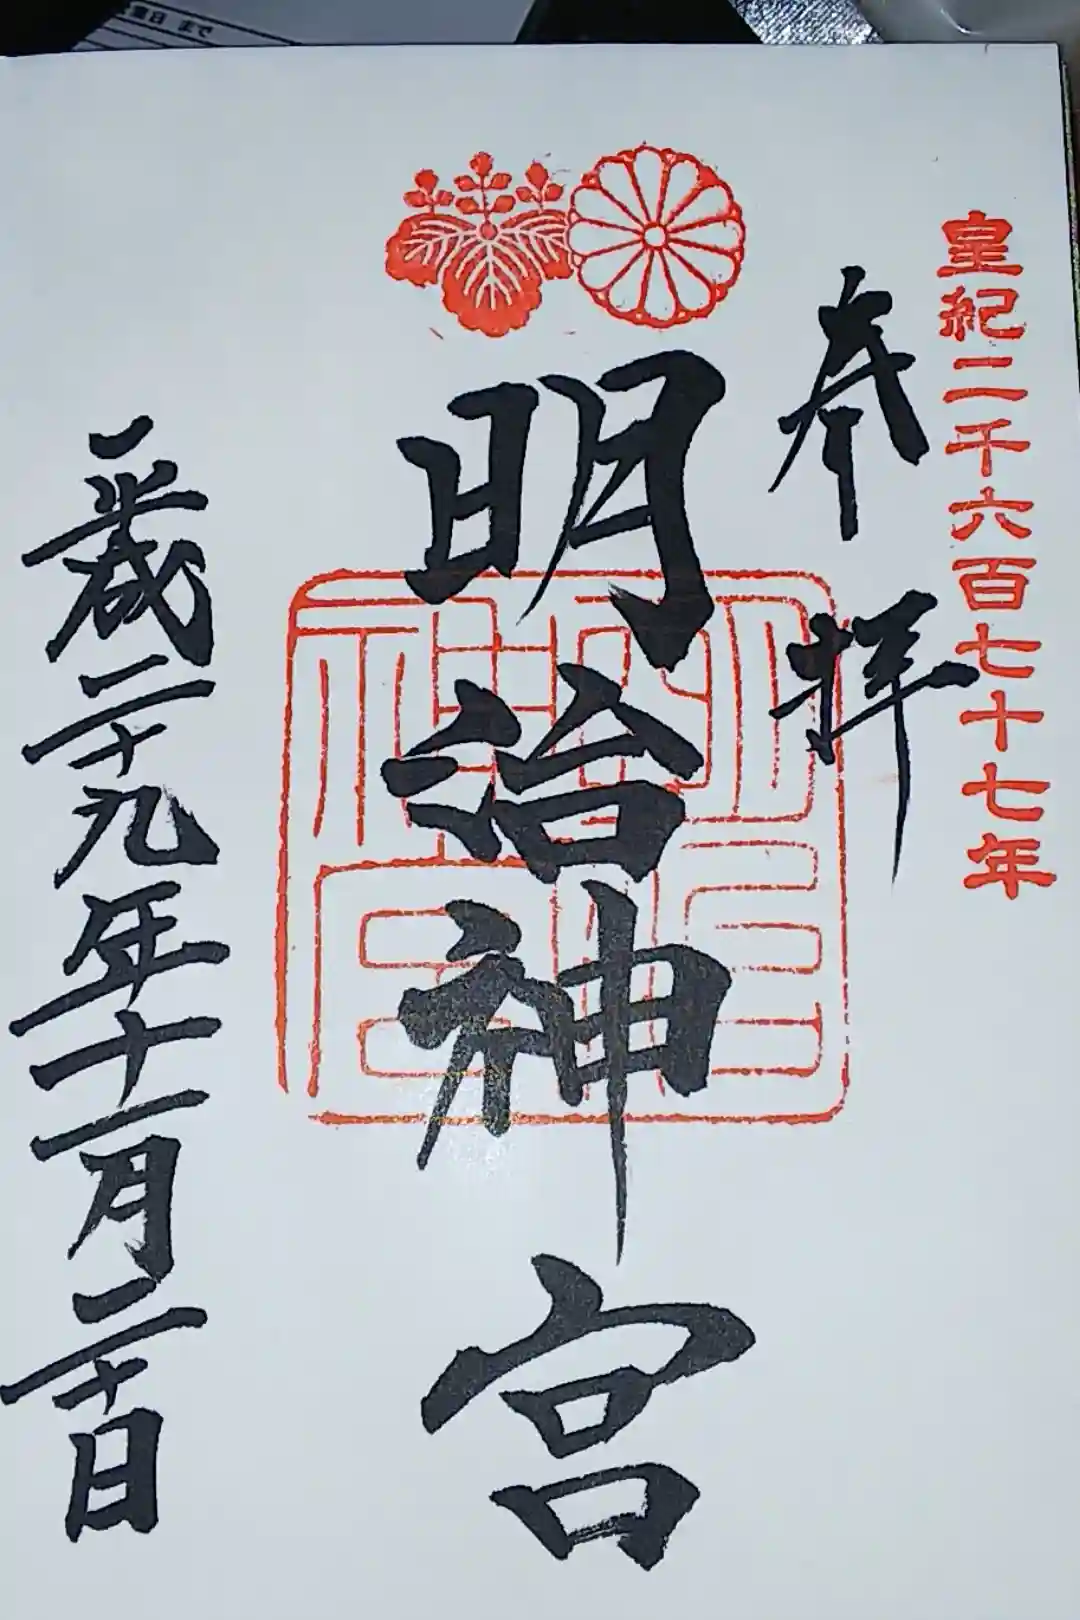 皇紀二千六百七十七年
奉拝
明治神宮
明治神宮
平成二十九年十一月二十日